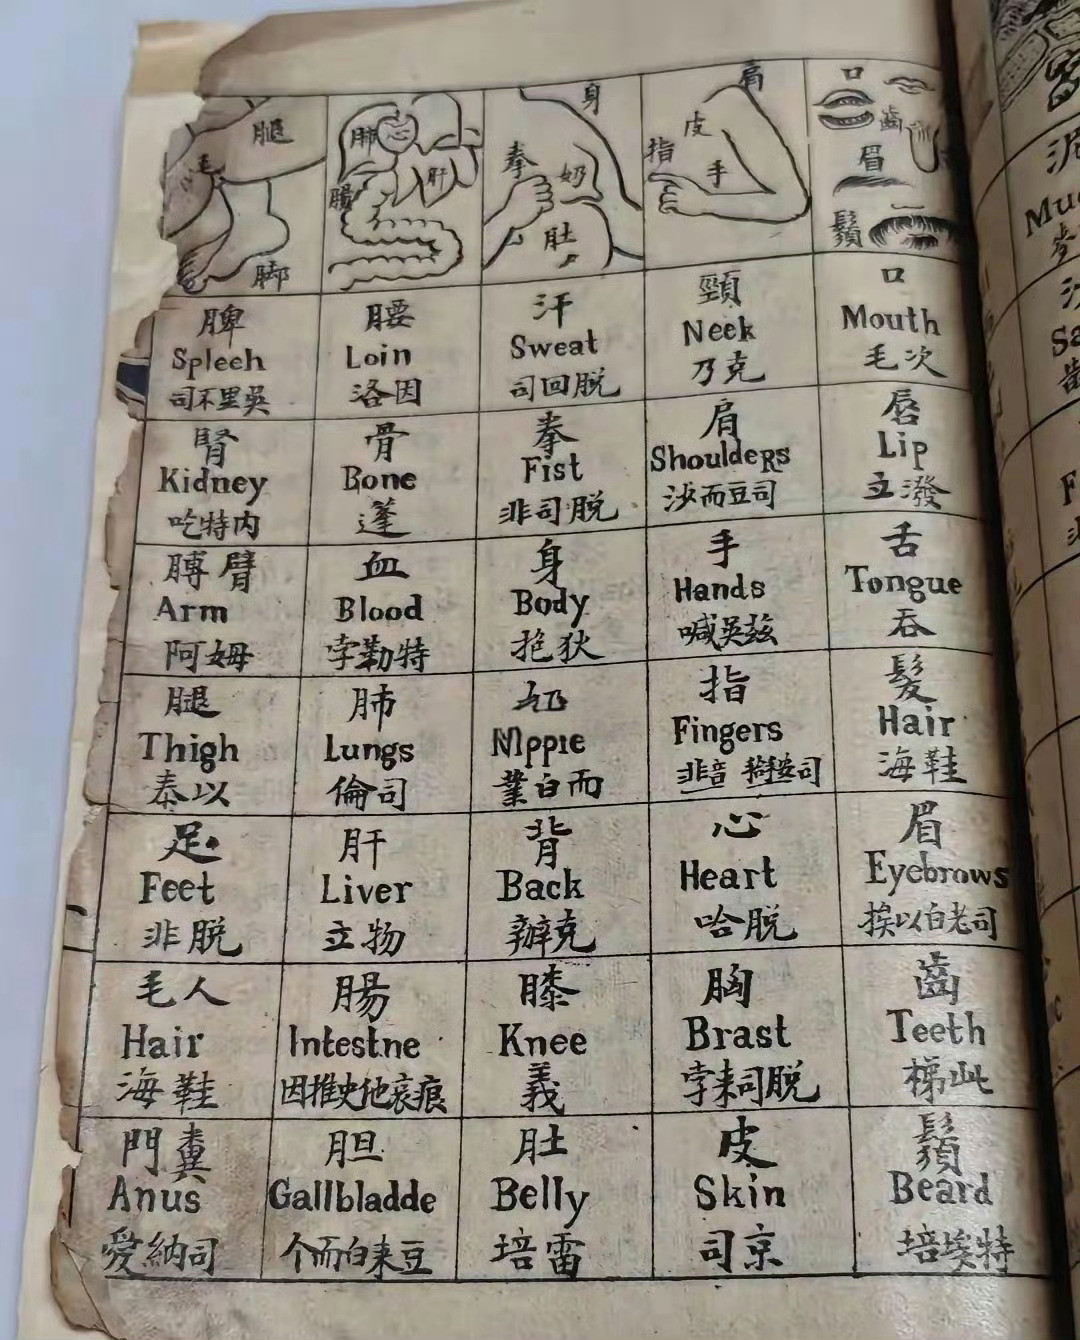 肩
身
口
腿
肺
心
皮
齒
毛
拳
奶
指
手
眉
肝
腸
肚
鬚
脚
脾
腰
汗
頸
口
Spleeh
Loin
Sweat
Neek
Mouth
司不里吳
洛因
司回脱
乃克
毛次
腎
骨
拳
肩
唇
Kidney
Bone
Fist
Shoulders
Lip
吃特内
蓬
非司脱
沙而豆司
立潑
膊臂
血
身
手
舌
Arm
Blood
Body
Hands
Tongue
阿姆
孛勒特
抱狄
喊吳茲
吞
腿
肺
奶
指
髮
Thigh
Lungs
Nippie
Fingers
Hair
泰以
倫司
業白而
非音 辩按司
海鞋
足
肝
背
心
眉
Feet
Liver
Back
Heart
Eyebrows
非脱
立物
辦克
哈脱
挨以白老司
毛人
腸
膝
胸
齒
Hair
Intestne
Knee
Brast
Teeth
海鞋
因推史他衰痕
義
孛来司脱
梯此
門糞
胆
肚
皮
鬚
Anus
Gallbladde
Belly
Skin
Beard
愛納司
个而白来豆
培雷
司京
培埃特